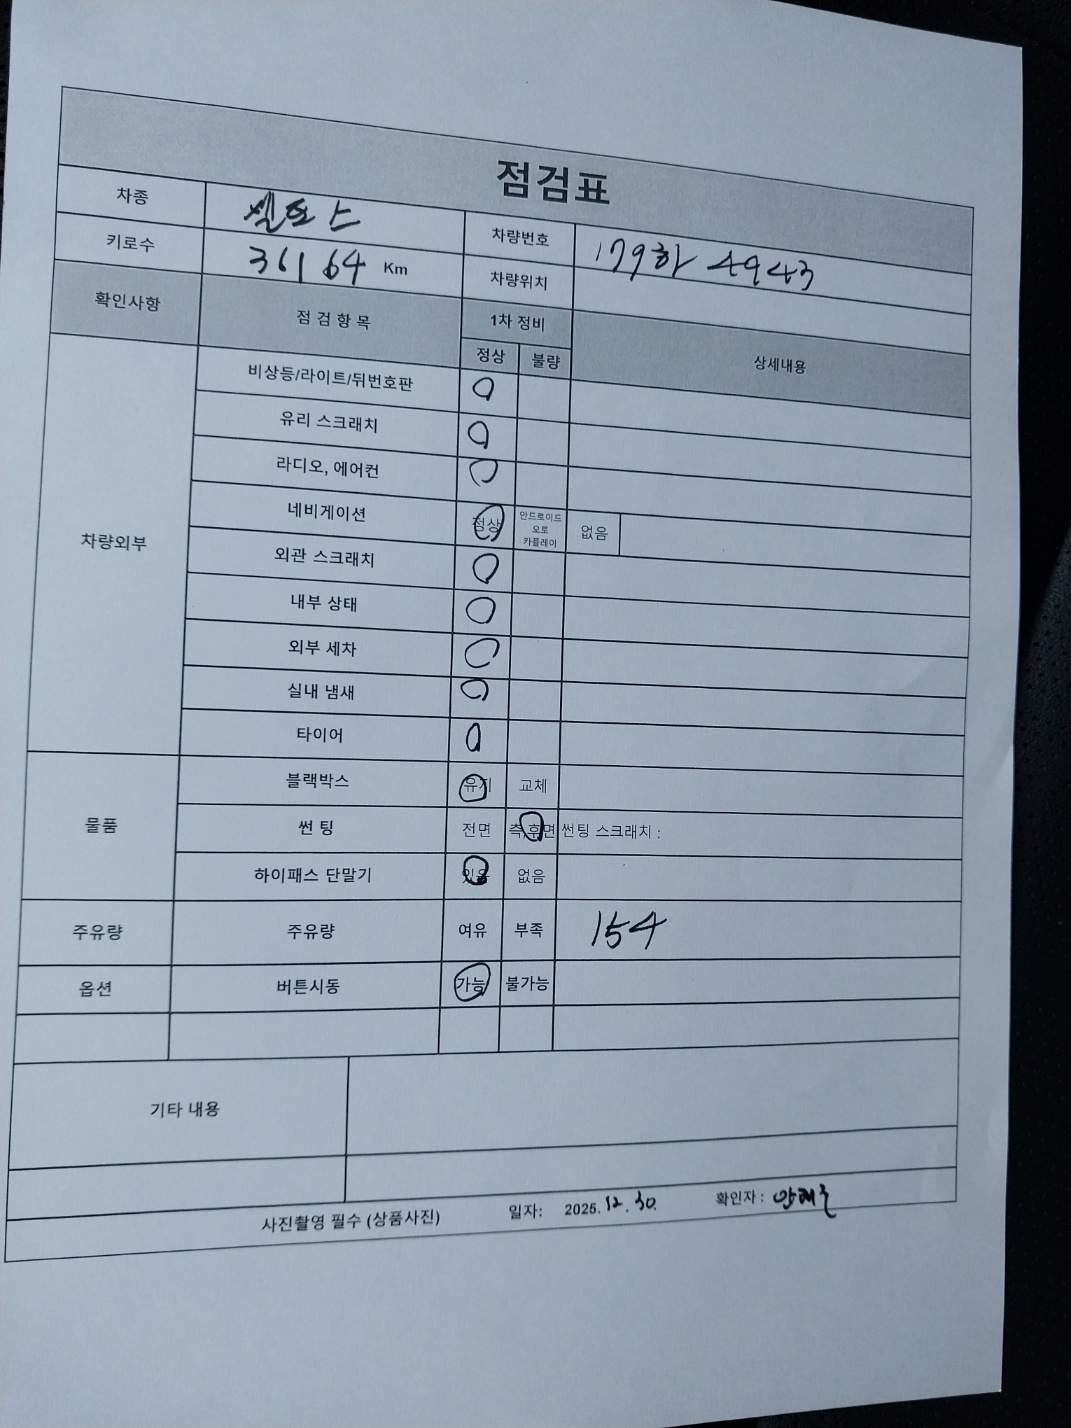 점검표
차종 셀토스 차량번호 179하 4943
키로수 36164 Km 차량위치
확인사항 점 검 항 목 1차 정비 상세내용
정상 불량
차량외부
비상등/라이트/뒤번호판 O
유리 스크래치 O
라디오, 에어컨 O
네비게이션 정상 안드로이드 오로 카플레이 없음
외관 스크래치 O
내부 상태 O
외부 세차 O
실내 냄새 O
타이어 O
물품
블랙박스 유지 교체
썬 팅 전면 측,후면 썬팅 스크래치 :
하이패스 단말기 있음 없음
주유량 주유량 여유 부족 154
옵션 버튼시동 가능 불가능
기타 내용
사진촬영 필수 (상품사진) 일자: 2025. 12. 30. 확인자 :